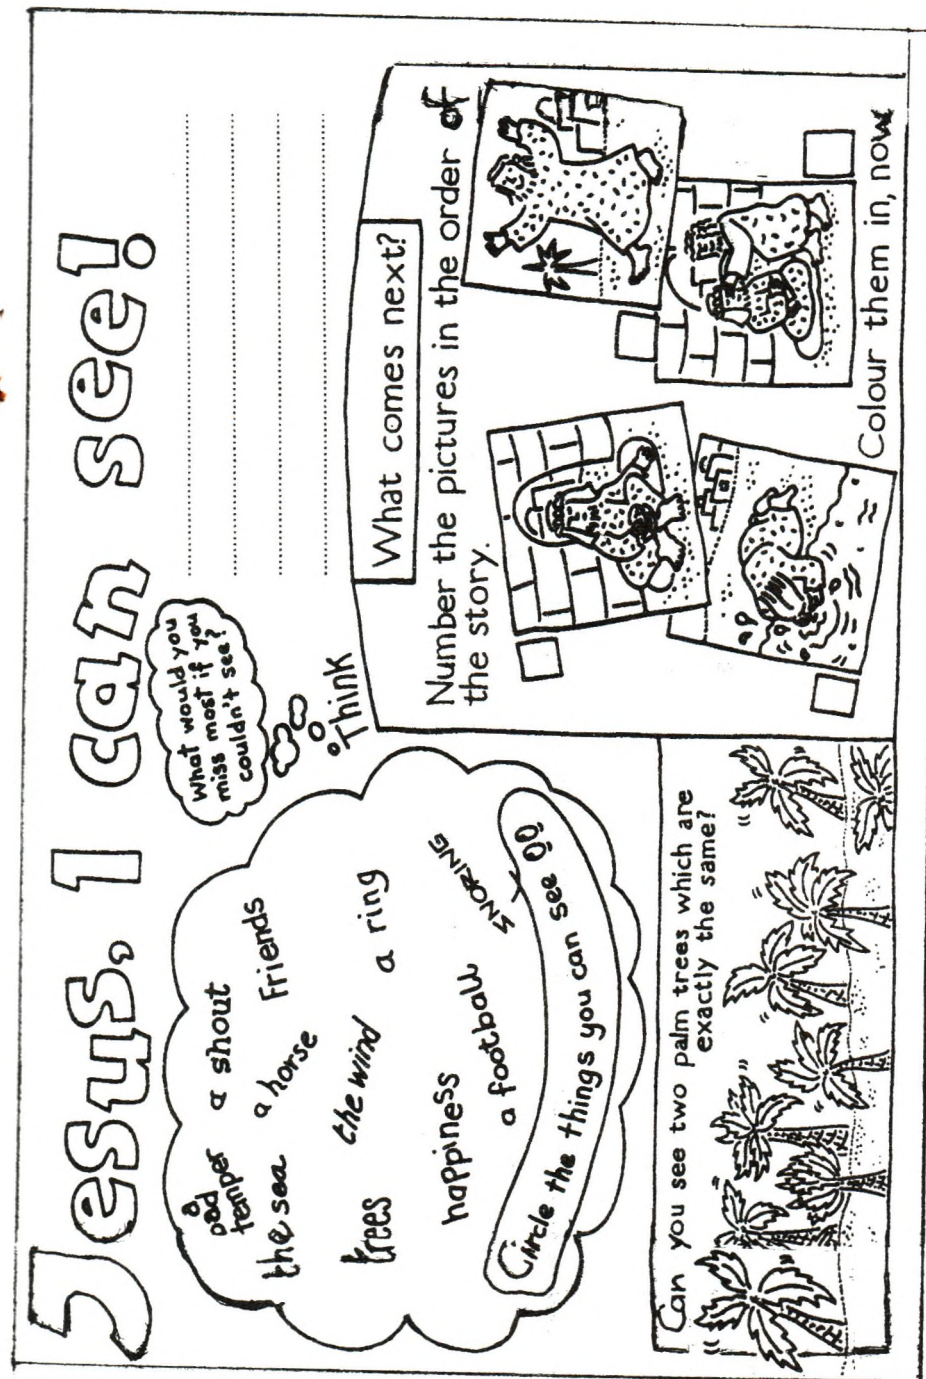 Jesus, I can see!
What would you
miss most if you
couldn't see?
Think
a
bad
temper
a shout
Friends
the sea
a horse
trees
the wind
a ring
happiness
a football
SNORING
Circle the things you can see
What comes next?
Number the pictures in the order of
the story.
Colour them in, now
Can you see two palm trees which are
exactly the same?